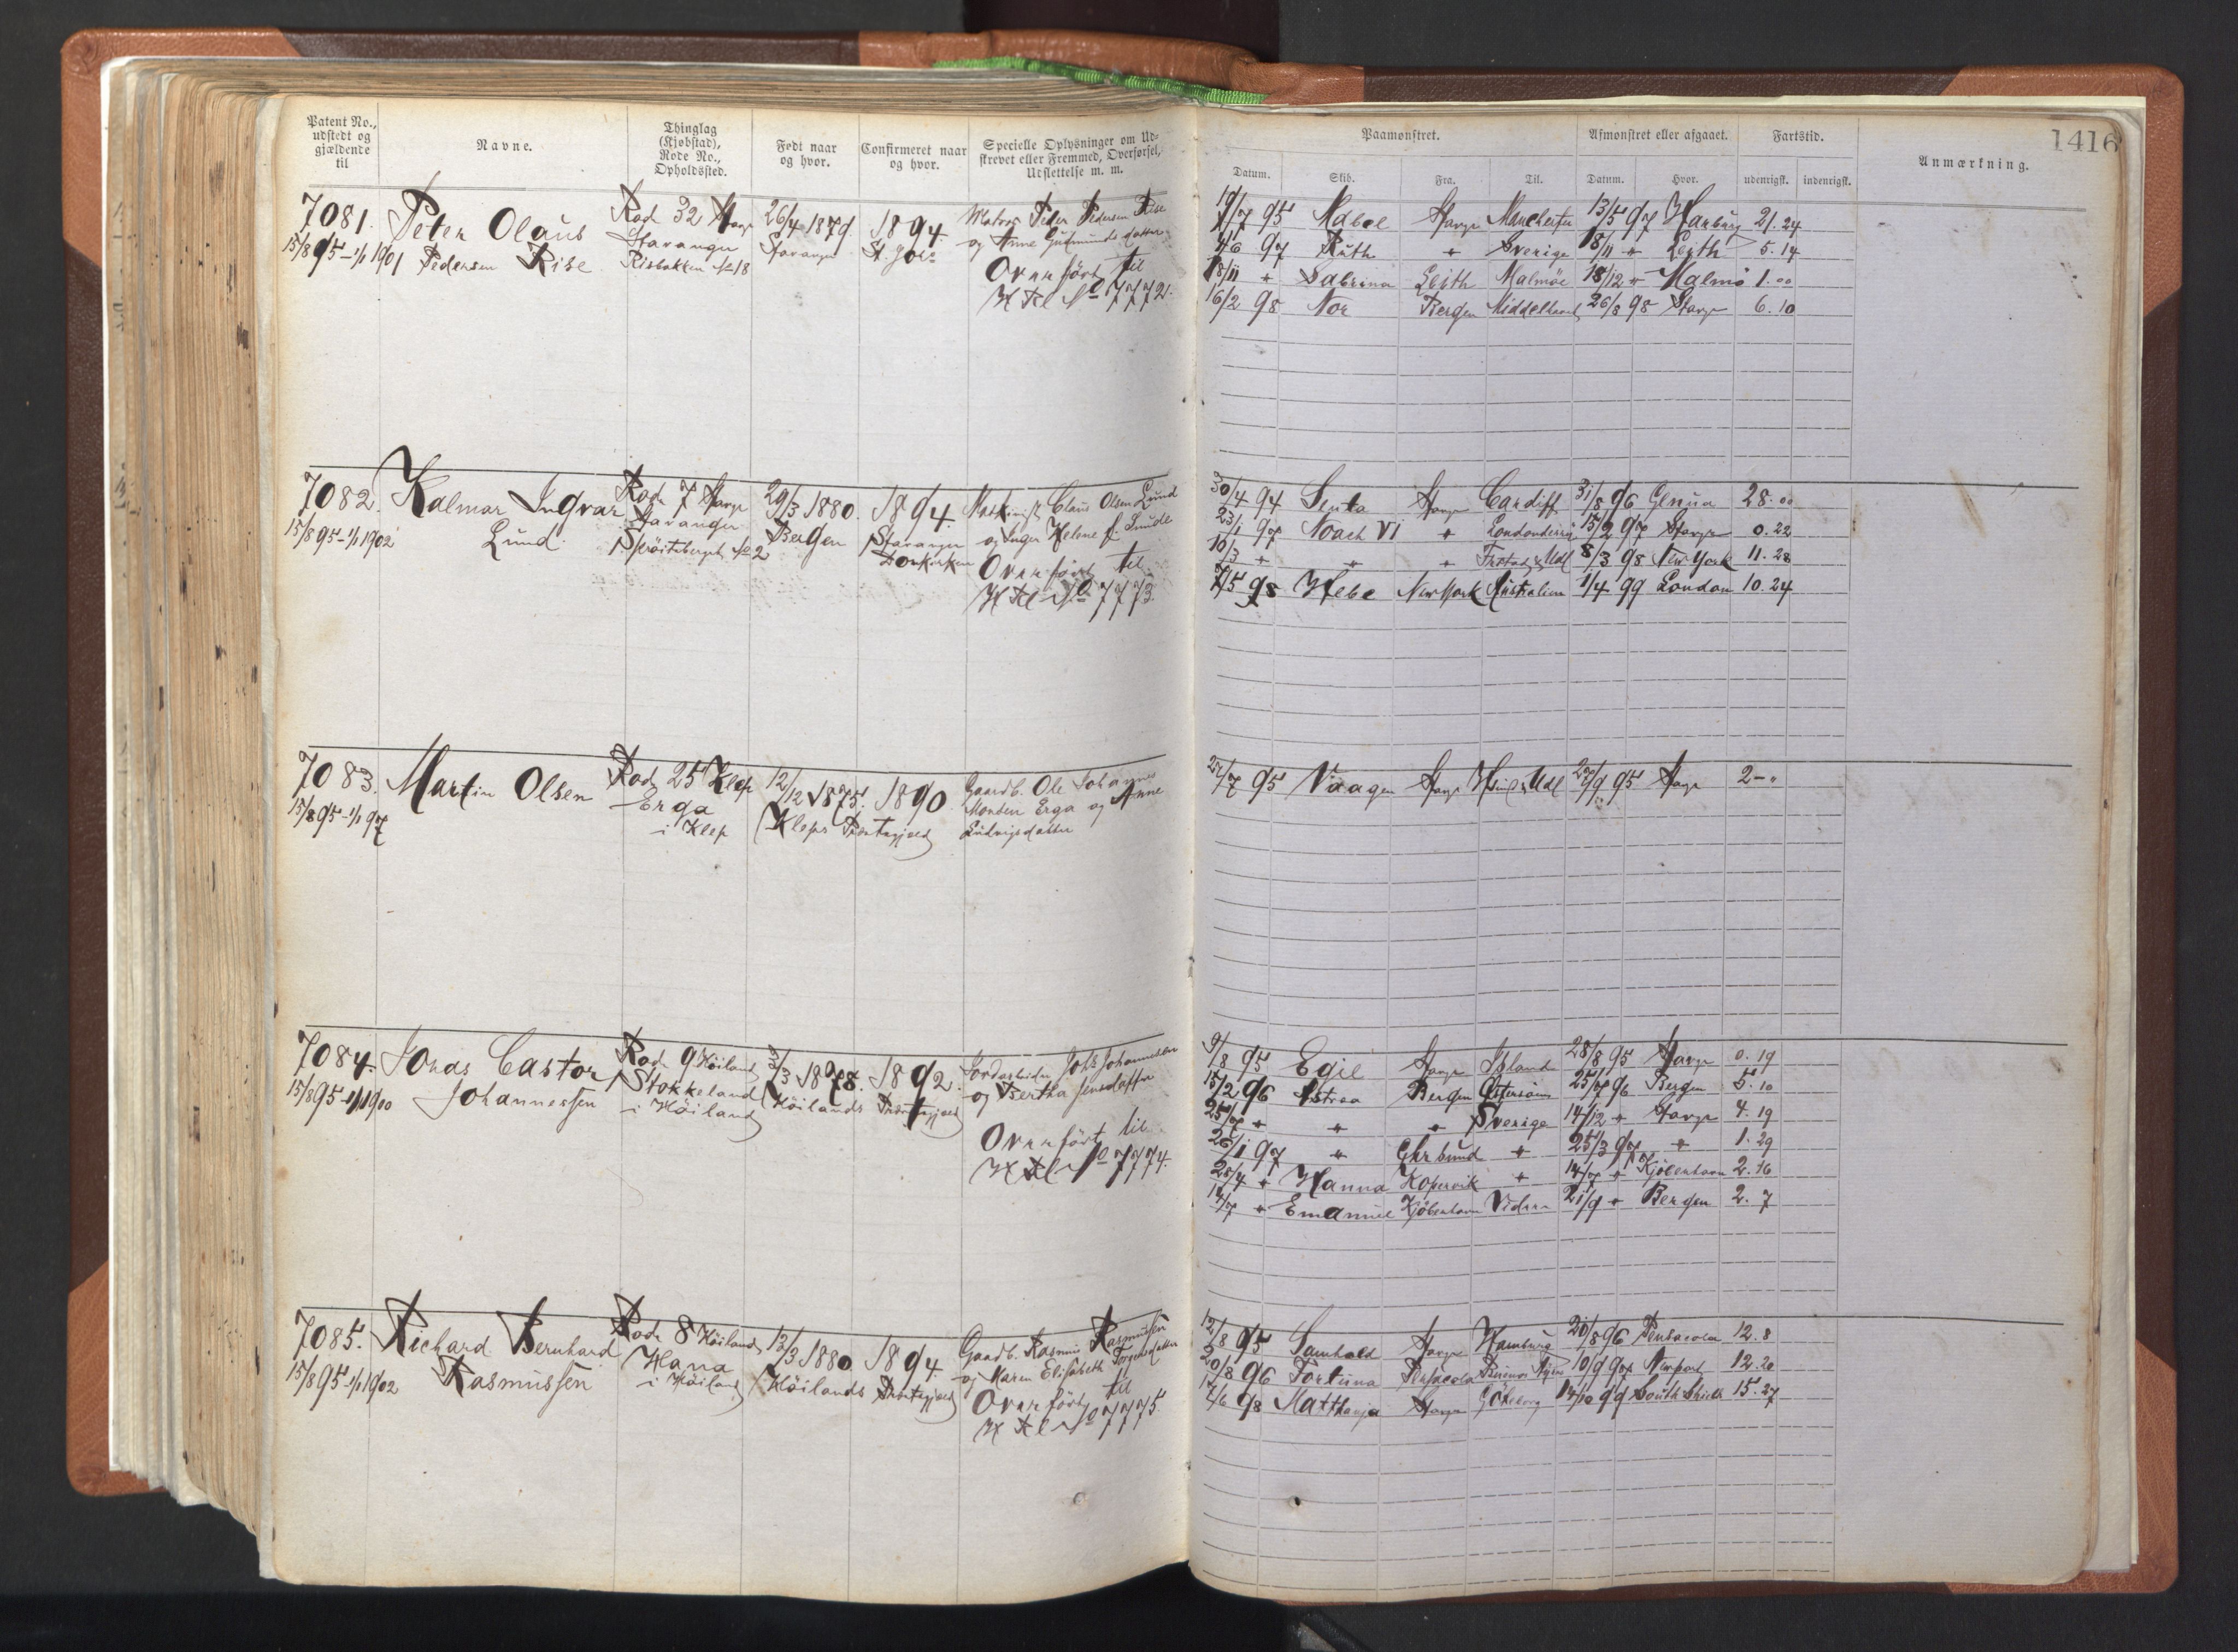 Patent No.,
udstedt og
gjældende
til
Navne.
Thinglag
(Kjøbstad),
Rode No.,
Opholdssted.
Født naar
og hvor.
Confirmeret naar
og hvor.
Specielle Oplysninger om Ud-
skrevet eller Fremmed, Overførsel,
Udslettelse m. m.
7081. Peter Olaus Rode 32 Stavgr 26/4 1879 1894. Matros Peder Pedersen Rise
15/8 95 – 1/1 1901 Pedersen Rise Stavanger Stavanger St. Joh: og Anne Gudmundsdatter
Risbakken № 18
Overført til
H Rl № 7772.
7082. Halmar Ingvar Rode 7 Stavgr 29/3 1880. 1894. Maskinist Claus Olsen Lund
15/8 95 – 1/1 1902 Lund. Stavanger Bergen Stavanger og Inger Helene f. Smide
№ 2 Domkirken
Overført til
H Rl № 7773.
7083. Martin Olsen Rode 25 Klep 12/12 1875. 1890. Gaardb. Ole Johannes
15/8 95 – 1/1 97 Erga Klep Præstegjæld Monsen Erga og Anne
i Klep Ludvigsdatter
7084. Jonas Castor Rode 9 Höiland 3/3 1878. 1892. Jordarbeider Johs Johannesen
15/8 95 – 1/1 1900 Johannessen Stokkeland Höilands Præstegjæld og Bertha Jensdatter
i Höiland
Overført til
H Rl № 7774.
7085. Richard Bernhard Rode 8 Höiland 13/3 1880 1894. Gaardb. Rasmus Rasmussen
15/8 95 – 1/1 1902 Rasmussen Hana Höilands Præstegjæld og Maren Elisabeth Torgersdatter
i Höiland
Overført til
H Rl № 7775.
1416
Paamønstret. Afmønstret eller afgaaet. Fartstid.
Anmærkning.
Datum. Skib. Fra. Til. Datum. Hvor. udenrigsk. indenrigsk.
19/7 95 Mabel Stavgr Manchester 13/5 97 Hamburg 21. 24
4/6 97 Ruth " Sverige 18/11 " Leith 5. 14
18/11 " Sabrina Leith Malmöe 18/12 " Malmö 1. 00
16/2 98 Nor Bergen Middelhavet 26/8 98 Stavgr 6. 10
30/4 94 Senta Stavgr Cardiff 31/8 96 Genua 28. 00
23/1 97 Noach VI " Londonderry 15/2 97 Stavgr 0. 22
10/3 " " " Udl 8/3 98 New York 11. 28
7/5 98 Hebe New York Australien 1/4 99 London 10. 24
27/7 95 Vaagen Stavgr Udl 27/9 95 Stavgr 2 – "
9/8 95 Egil Stavgr Island 28/8 95 Stavgr 0. 19
15/2 96 Astrea Bergen Östersöen 25/7 96 Bergen 5. 10
25/7 " " " Sverige 14/12 " Stavgr 4. 19
26/1 97 " " 25/3 97 " 1. 29
28/4 " Hanna Kopervik " 14/7 " Kjöbenhavn 2. 16
14/7 " Emanuel Kjöbenhavn 21/9 " Bergen 2. 7
12/8 95 Samhold Stavgr Hamburg 20/8 96 Pensacola 12. 8
20/8 96 Fortuna Pensacola Buenos Ayres 10/9 97 Newport 12. 20
17/6 98 Matthanja Stavgr Göteborg 14/10 99 South Shields 15. 27